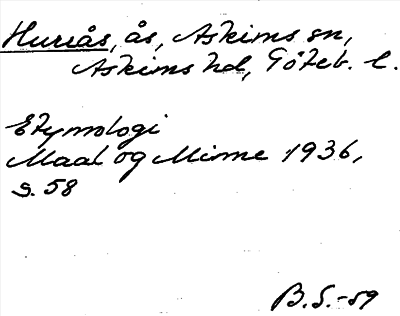 Hurrås, ås, Askims sn,
Askims hd, Göteb. l.
Etymologi
Maal og Minne 1936,
s. 58
B.S.-59